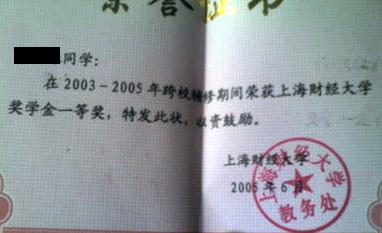 荣誉证书
同学：
在2003-2005年跨校辅修期间荣获上海财经大学
奖学金一等奖，特发此状，以资鼓励。
上海财经大学
2005年6月
上海财经大学
教务处